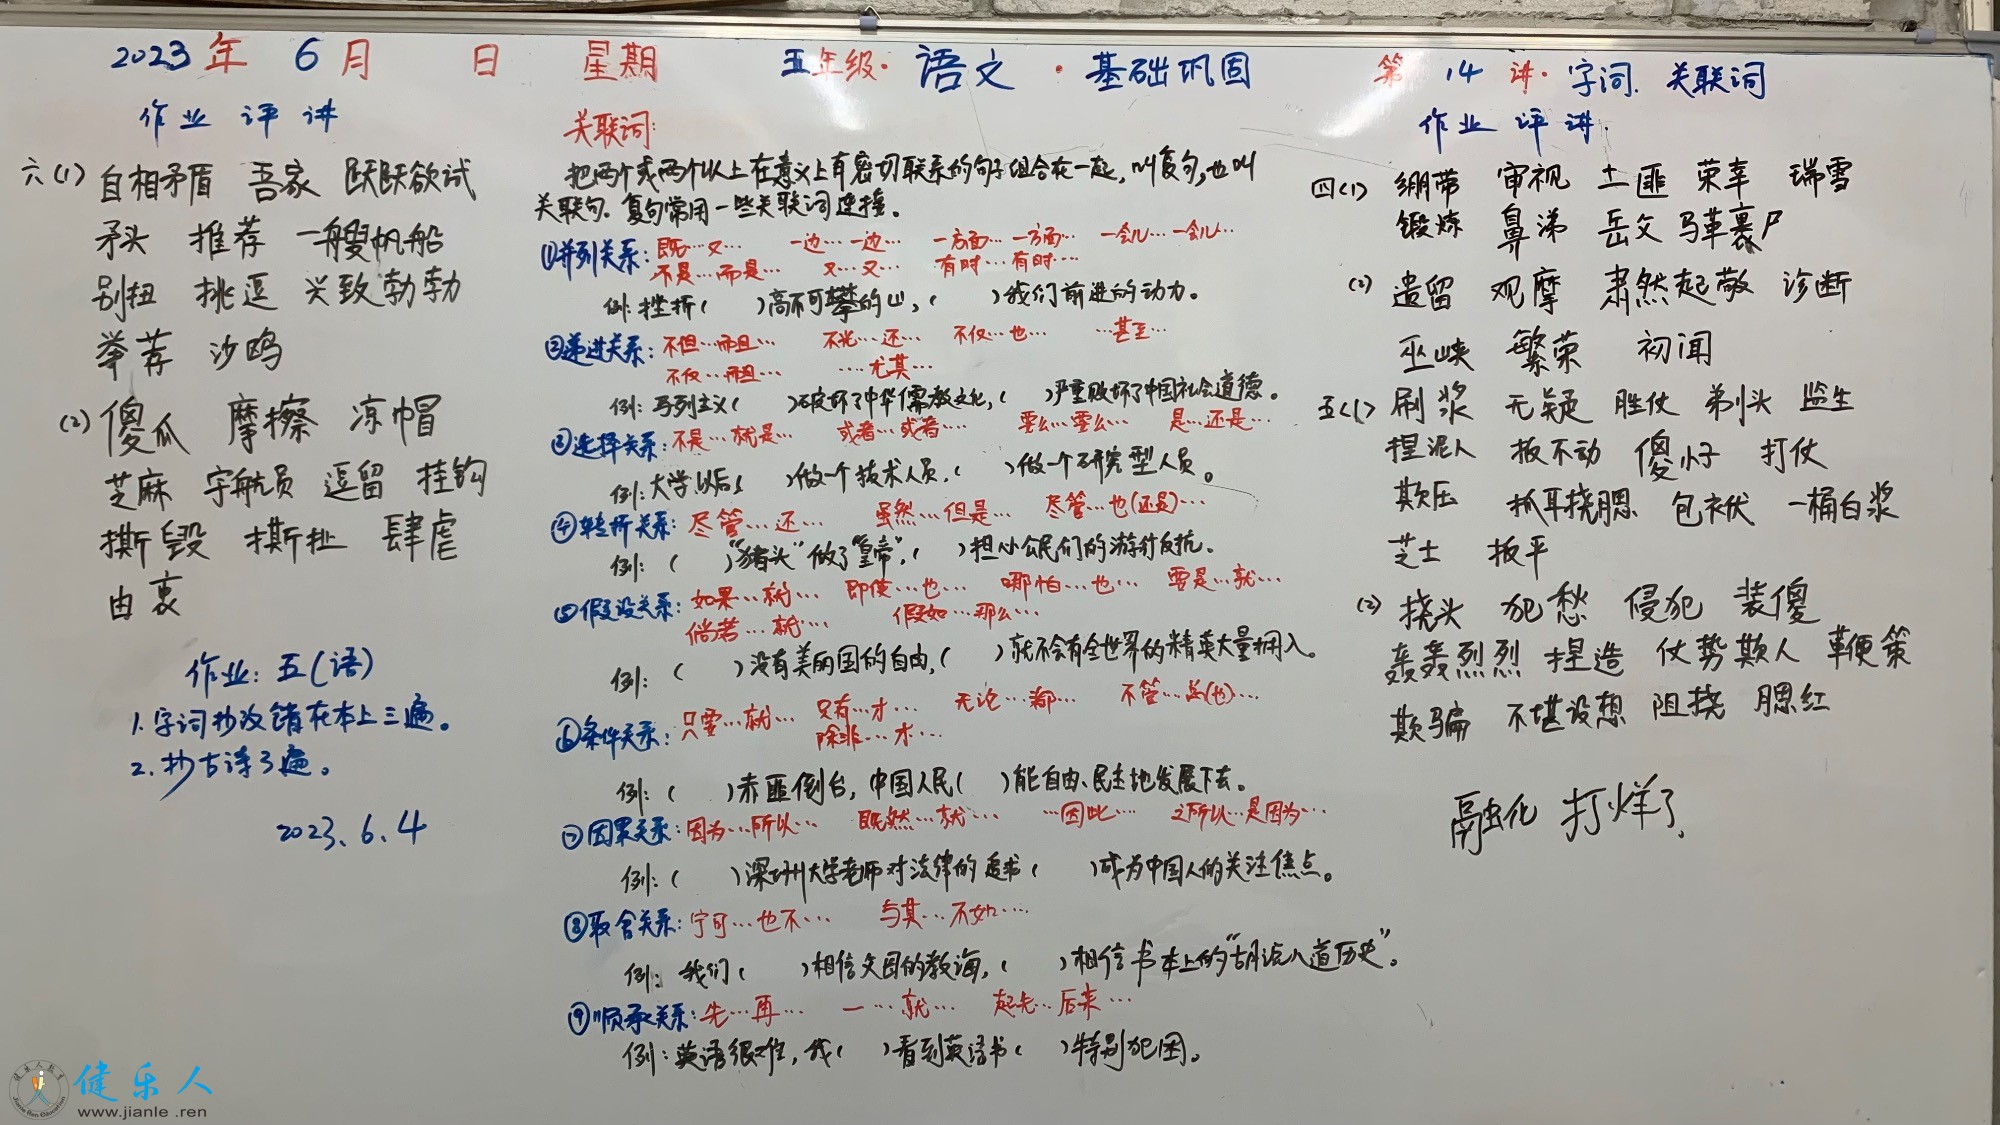 2023年 6月 日 星期 五年级·语文·基础巩固 第14讲·字词、关联词
作业评讲
六(1) 自相矛盾 吾家 跃跃欲试
矛头 推荐 一艘帆船
别扭 挑逗 兴致勃勃
举荐 沙鸥
(2) 傻瓜 摩擦 凉帽
芝麻 宇航员 逗留 挂钩
撕毁 撕扯 肆虐
由衷
作业：五(语)
1.字词抄没错在本上三遍。
2.抄古诗3遍。
2023.6.4
关联词：
把两个或两个以上在意义上有密切联系的句子组合在一起，叫复句，也叫
关联句。复句常用一些关联词连接。
①并列关系：既…又… 一边…一边… 一方面…一方面… 一会儿…一会儿…
不是…而是… 又…又… 有时…有时…
例：挫折( )高不可攀的山，( )我们前进的动力。
②递进关系：不但…而且… 不光…还… 不仅…也… …甚至…
不仅…而且… …尤其…
例：马列主义( )破坏了中华儒教文化，( )严重败坏了中国社会道德。
③选择关系：不是…就是… 或者…或者… 要么…要么… 是…还是…
例：大学以后( )做一个技术人员，( )做一个研究型人员。
④转折关系：尽管…还… 虽然…但是… 尽管…也(还是)…
例：( )“猪头”做了“皇帝”，( )担心公民们的游行反抗。
⑤假设关系：如果…就… 即使…也… 哪怕…也… 要是…就…
倘若…就… 假如…那么…
例：( )没有美丽国的自由，( )就不会有全世界的精英大量拥入。
⑥条件关系：只要…就… 只有…才… 无论…都… 不管…总(也)…
除非…才…
例：( )赤匪倒台，中国人民( )能自由、民主地发展下去。
⑦因果关系：因为…所以… 既然…就… …因此… 之所以…是因为…
例：( )深圳大学老师对法律的 ( )成为中国人的关注焦点。
⑧取舍关系：宁可…也不… 与其…不如…
例：我们( )相信文国的教诲，( )相信书本上的“胡说八道历史”。
⑨顺承关系：先…再… 一…就… 起先…后来…
例：英语很难，我( )看到英语书( )特别犯困。
作业评讲
四(1) 绷带 审视 土匪 荣幸 瑞雪
锻炼 鼻涕 岳父 马革裹尸
(2) 遗留 观摩 肃然起敬 诊断
巫峡 繁荣 初闻
五(1) 刷浆 无疑 胜仗 剃头 监生
捏泥人 扳不动 傻小子 打仗
欺压 抓耳挠腮 包袱 一桶白浆
芝士 扳平
(2) 挠头 犯愁 侵犯 装傻
轰轰烈烈 捏造 仗势欺人 鞭策
欺骗 不堪设想 阻挠 腮红
融化 打烊了
健乐人
www.jianle.ren